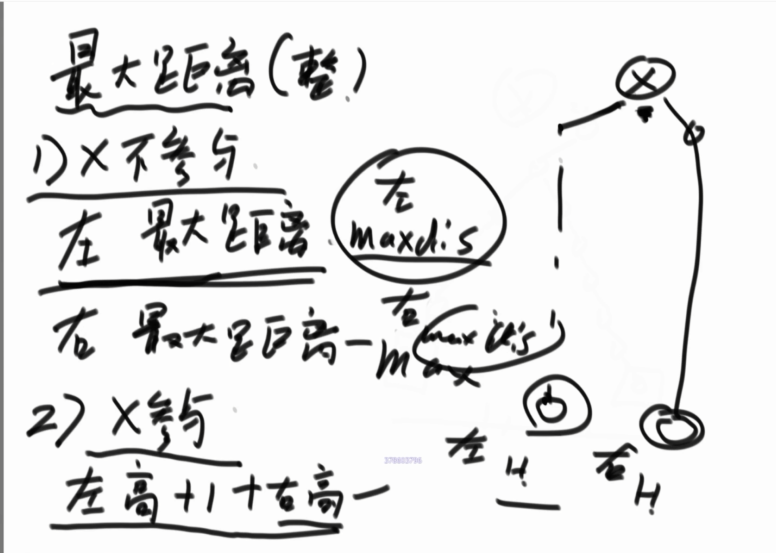 最大距离(整)
1) X 不参与
左 最大距离
左
maxdis
右 最大距离
右
maxdis
max
2) X参与
左高+1+右高
X
左
H
右
H
376603796